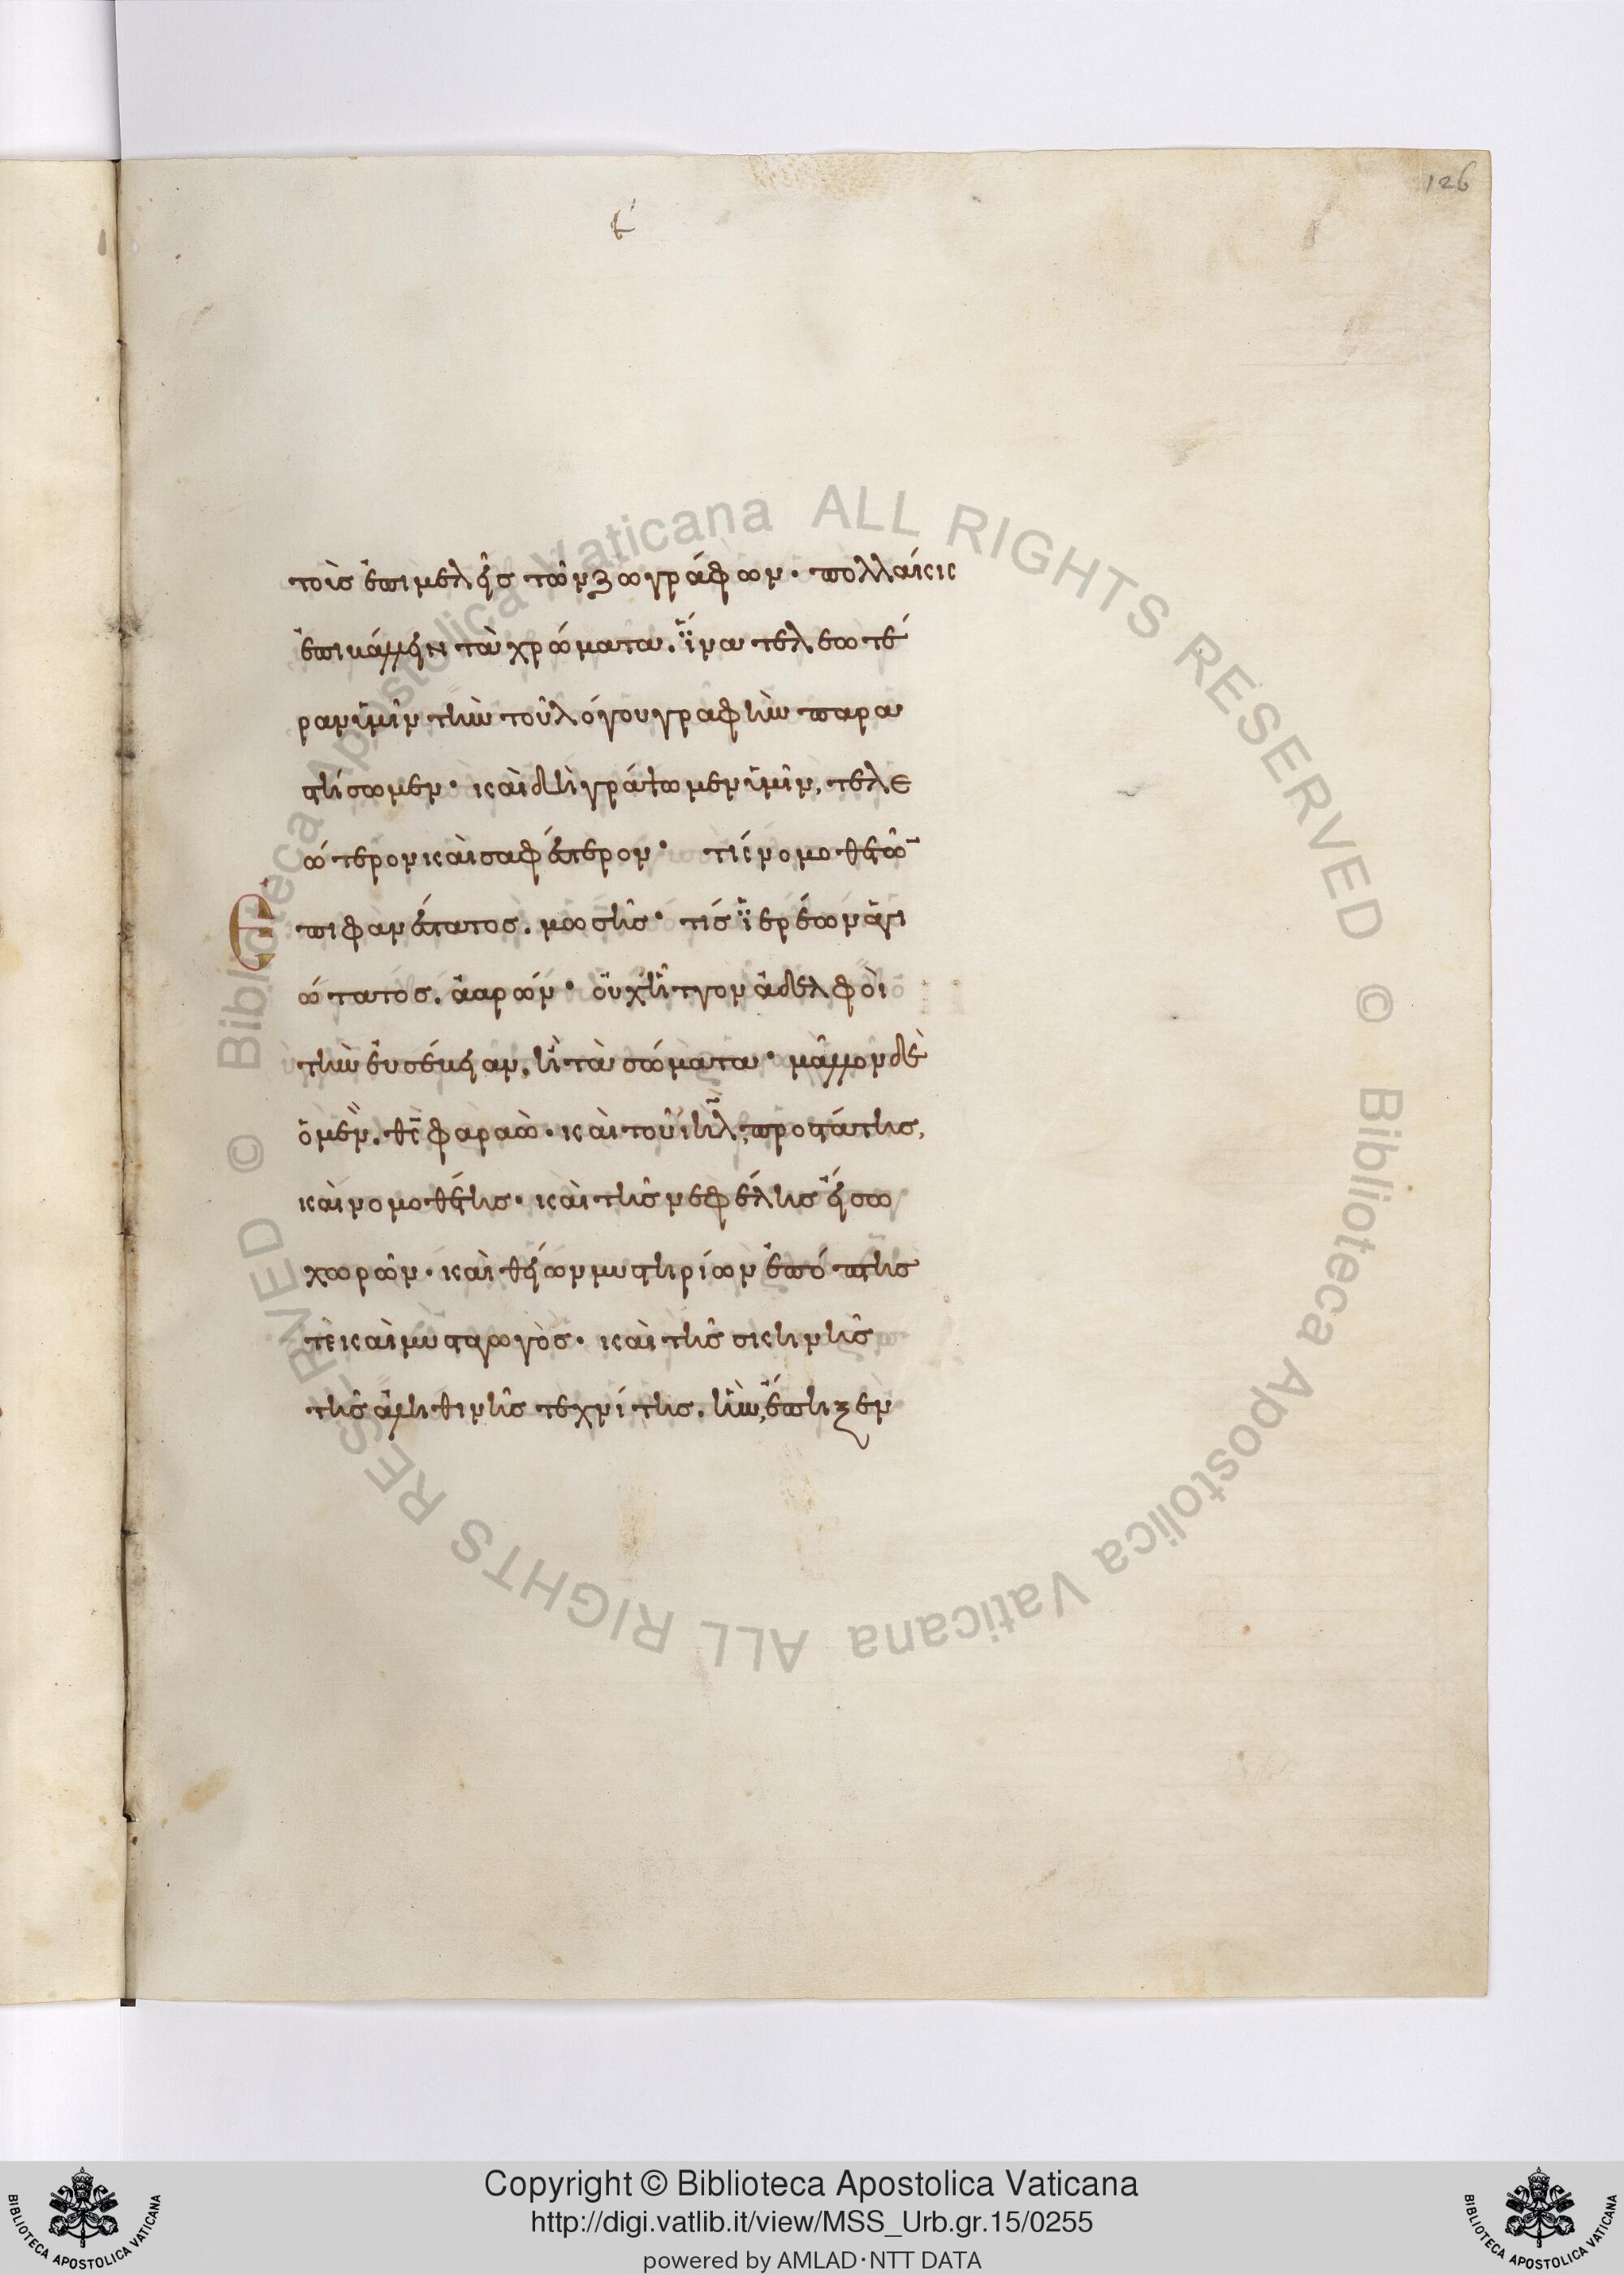 126
τοῖς ἐπιμελέσι τῶν ζωγράφων· πολλάκις
ἐπιβάλλειν τὰ χρώματα. ἵνα τελεωτέ
ραν ὑμῖν τὴν τοῦ λόγου γραφὴν παρα
στήσωμεν· καὶ δὴ γράψωμεν ὑμῖν, τελε
ώτερον καὶ σαφέστερον· τίς νομοθετῶν
ἐπιφανέστατος. μωσῆς· τίς ἱερέων ἁγι
ώτατος. ἀαρών· οὐχ ἧττον ἀδελφοὶ
τὴν εὐσέβειαν, ἢ τὰ σώματα· μᾶλλον δὲ
ὁ μὲν. θς φαραὼ· καὶ τοῦ ιηλ προστάτης,
καὶ νομοθέτης· καὶ τῆς νεφέλης εἴσω
χωρῶν· καὶ θείων μυστηρίων ἐπόπτης
τὲ καὶ μυσταγωγὸς· καὶ τῆς σκηνῆς
τῆς ἀληθινῆς τεχνίτης. ἣν, ἔπηξεν
Copyright © Biblioteca Apostolica Vaticana
http://digi.vatlib.it/view/MSS_Urb.gr.15/0255
powered by AMLAD·NTT DATA
BIBLIOTECA APOSTOLICA VATICANA
BIBLIOTECA APOSTOLICA VATICANA
© Biblioteca Apostolica Vaticana ALL RIGHTS RESERVED © Biblioteca Apostolica Vaticana ALL RIGHTS RESERVED